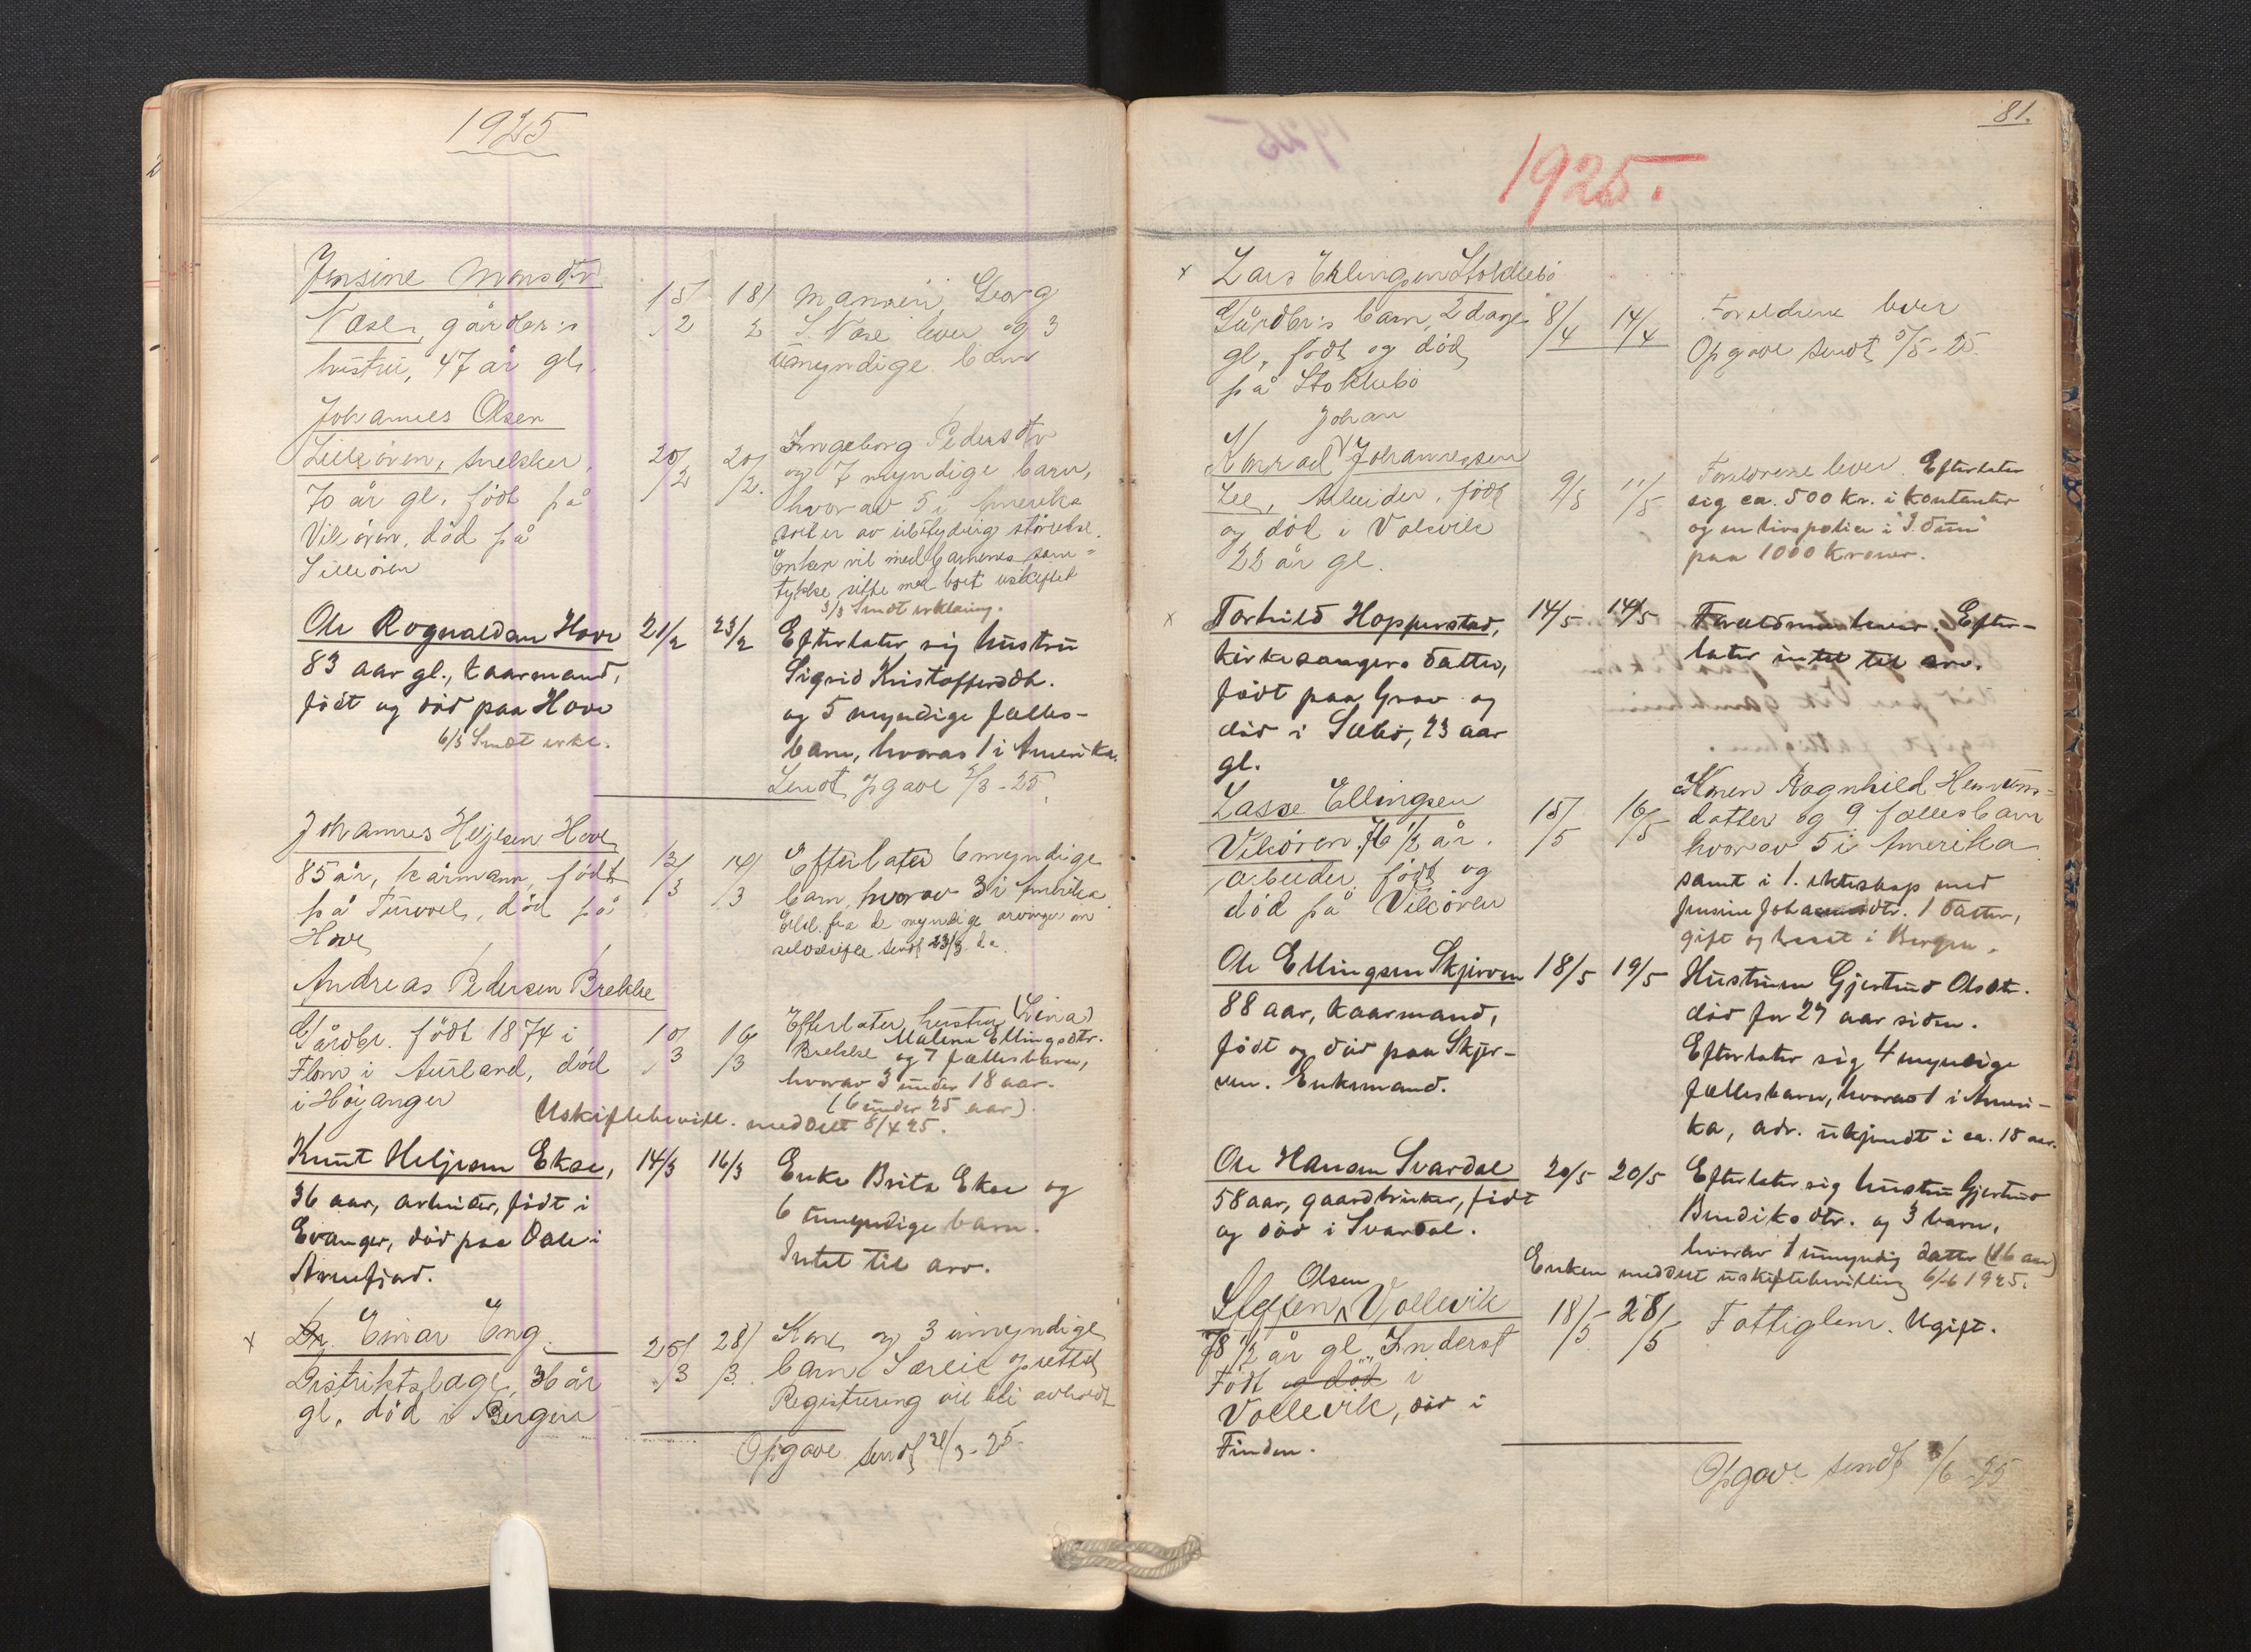 1925
Jensine Monsdtr
Næse, gårdbr:s
hustru, 47 år gl.
15/2
18/2
Mannen, Georg
S. Næse lever og 3
umyndige barn
Johannes Olsen
Vikøren, snekker,
70 år gl. født på
Vikøren, död på
Vikören
20/2
20/2.
Ingeborg Pedersdtr
og 7 myndige barn,
hvorav 5 i Amerika
av ubetydelig störrelse.
Enken vil med barnenes sam=
tykke sitte med boet uskiftet
3/3 Sendt erklæring.
Ole Rognaldsen Hove
83 aar gl., kaarmand,
födt og död paa Hove
6/3 Sendt erkl.
21/2
23/2
Efterlater sig hustru
Sigrid Kristoffersdtr.
og 5 myndige fælles-
barn, hvorav 1 i Amerika.
Sendt opgave 2/3-25.
Johannes Heljesen Hove
85 år, kårmann, født
på Turvoll, død på
Hove
12/3
14/3
Efterlater 6 myndige
barn, hvorav 3 i Amerika
Erkl. fra de myndige arvinger om
selvskifte sendt 23/3 d.a.
Andreas Pedersen Brekke
Gårdbr. født 1874 i
Flom i Aurland, död
i Høyanger
10/3
16/3
Efterlater hustru (Lina)
Malene Ellingsdtr.
Brekke og 7 fællesbarn,
hvorav 3 under 18 aar.
(6 under 25 aar).
Uskiftebevill. meddelt 8/4 25.
Knut Heljesen Ekse,
36 aar, arbeider, födt i
Evanger, död paa Dale i
Arnefjord.
14/3
16/3
Enke Brita Ekse og
6 umyndige barn.
Intet til arv.
x Dr. Einar Eng
Distriktslæge, 36 år
gl. död i Bergen
25/3
28/3
Kone og 3 umyndige
barn. Særeie oprettet
Registrering vil bli avholdt
Opgave sendt 31/3-25
81.
1925.
x Lars Erlingsen Stokkebö
Gårdbr:s barn, 2 dage
gl. født og död
på Stokkebö
8/4
14/4
Foreldrene lever
Opgave sendt 5/5-25.
Johan
Konrad Johannessen
Lee, Arbeider, født
og död i Volsvik
22 år gl.
9/5
11/5
Foreldrene lever. Efterlater
sig ca. 500 kr. i kontanter
og en livspolice i "Idun"
paa 1000 kroner.
x Torhild Hopperstad,
kirkesangers datter,
födt paa Grov og
död i Sæbö, 23 aar
gl.
14/5
14/5
Forældrene lever. Efter-
later intet til arv.
Lasse Ellingsen
Vikören, 76 1/2 år.
arbeider, født og
död på Vikören
15/5
16/5
Konen Ragnhild Hermuns-
datter og 9 fællesbarn
hvorav 5 i Amerika
samt i 1. ekteskap med
Jensine Johannesdtr. 1 datter,
gift og bosat i Bergen.
Ole Ellingsen Skjervem
88 aar, kaarmand,
födt og död paa Skjer-
vem. Enkemand.
18/5
19/5
Hustruen Gjertrud Olsdtr.
död for 27 aar siden.
Efterlater sig 4 myndige
fællesbarn, hvorav 1 i Ameri-
ka, adr. ukjendt i ca. 18 aar.
Ole Hansen Svardal
58 aar, gaardbruker, födt
og död i Svardal.
20/5
20/5
Efterlater sig hustru Gjertrud
Bendiksdtr. og 3 barn,
hvorav 1 umyndig datter (16 aar)
Enken meddelt uskiftebevilling 6/6 1925.
Olsen
Steffen Vollevik
78 1/2 år gl. Inderst
Født og död i
Vollevik, död i
Finden.
18/5
28/5
Fattiglem. Ugift.
Opgave sendt /6-25